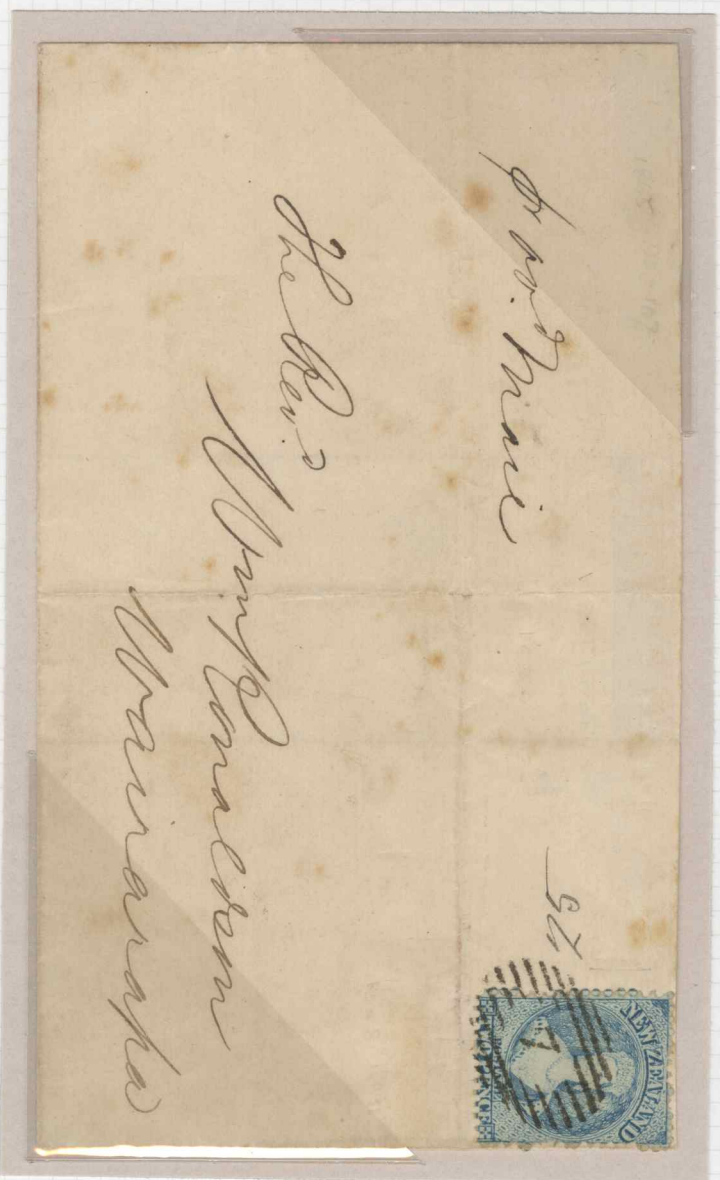 pr ov.d Maie
The Rev.d
Wm Ronaldson
Wairarapa
NEW ZEALAND
TWO PENCE